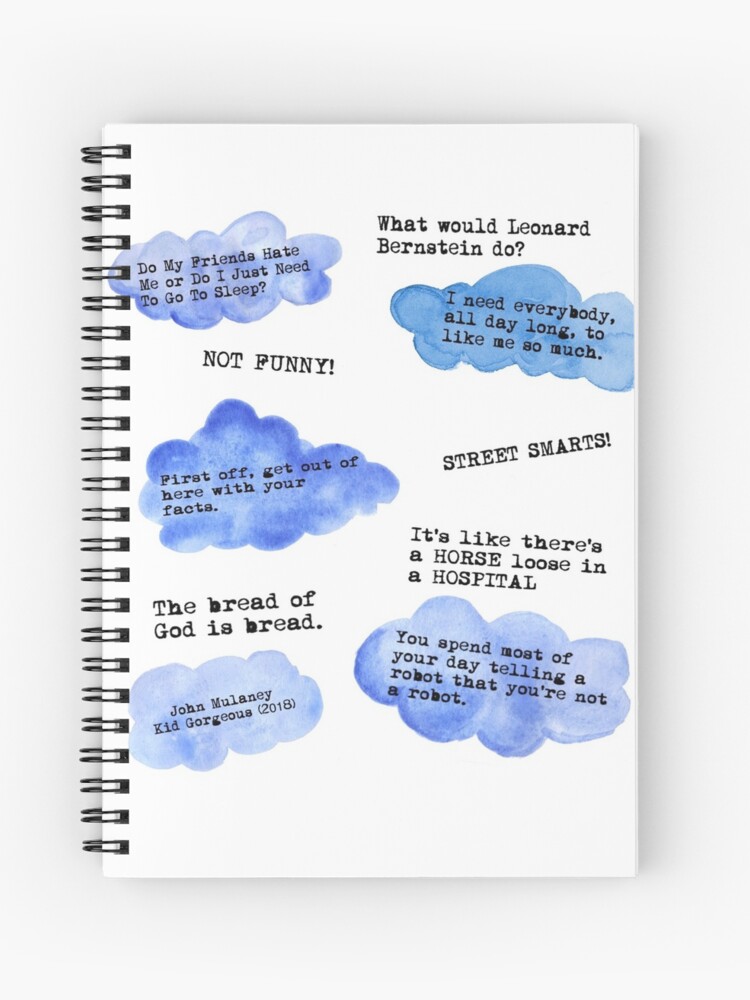 What would Leonard
Bernstein do?
Do My Friends Hate
Me or Do I Just Need
To Go To Sleep?
I need everybody,
all day long, to
like me so much.
NOT FUNNY!
STREET SMARTS!
First off, get out of
here with your
facts.
It's like there's
a HORSE loose in
a HOSPITAL
The bread of
God is bread.
You spend most of
your day telling a
robot that you're not
a robot.
John Mulaney
Kid Gorgeous (2018)